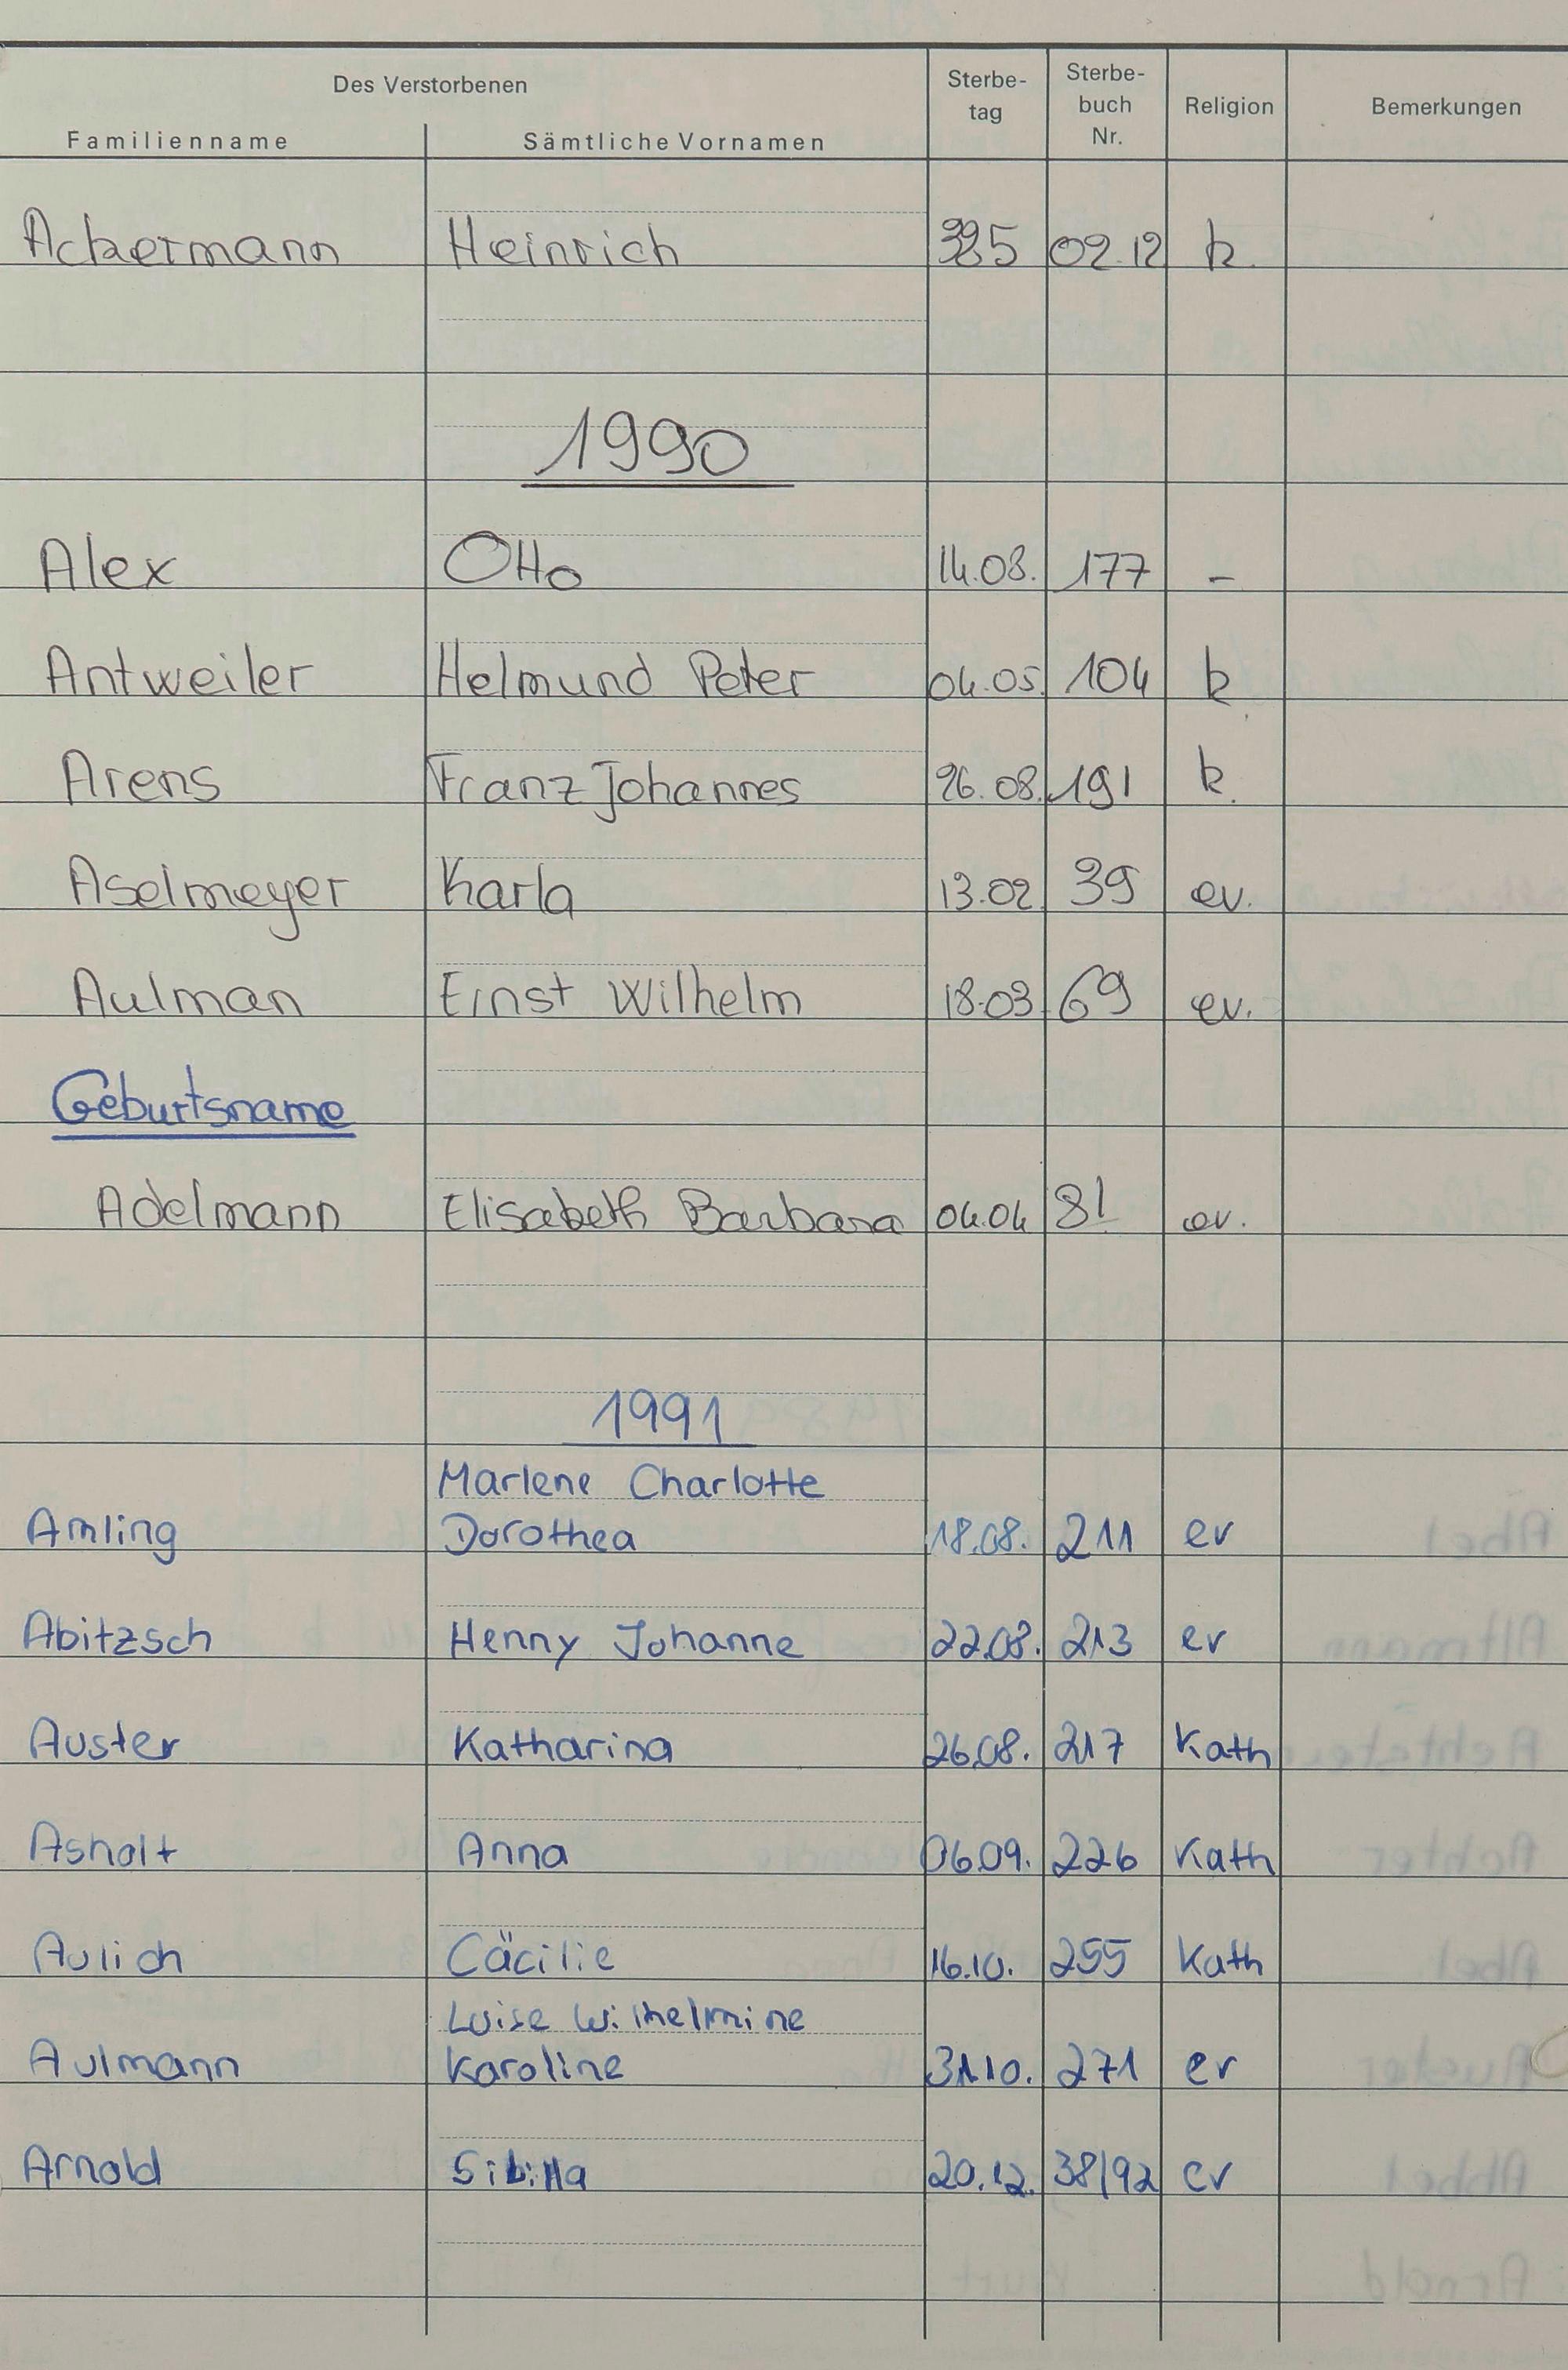 Des Verstorbenen
Familienname Sämtliche Vornamen Sterbe-tag Sterbe-buch Nr. Religion Bemerkungen
Ackermann Heinrich 325 02.12 k.
1990
Alex Otto 14.08. 177 –
Antweiler Helmund Peter 04.05. 104 k
Arens Franz Johannes 26.08. 191 k.
Aselmeyer Karla 13.02. 39 ev.
Aulman Ernst Wilhelm 18.03. 69 ev.
Geburtsname
Adelmann Elisabeth Barbara 04.04 81 ev.
1991
Marlene Charlotte
Amling Dorothea 18.08. 211 ev
Abitzsch Henny Johanne 22.08. 213 ev
Auster Katharina 26.08. 217 Kath
Asholt Anna 06.09. 226 Kath
Aulich Cäcilie 16.10. 255 Kath
Luise Wilhelmine
Aulmann Karoline 31.10. 271 ev
Arnold Sibilla 20.12. 38/92 ev